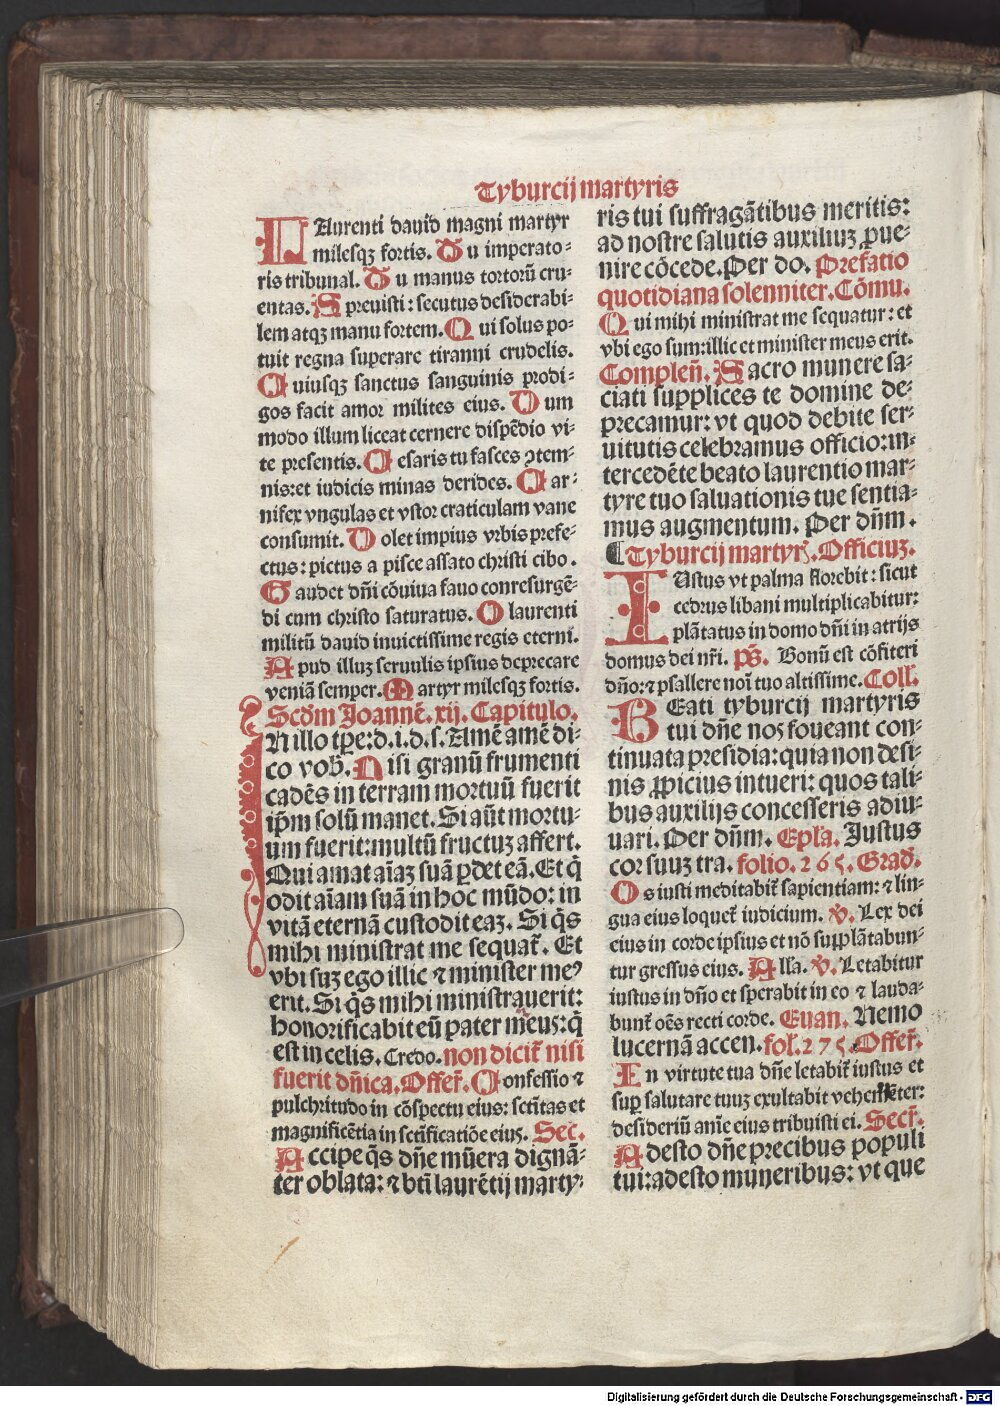 Tyburcij martyris
LAurenti dauid magni martyr
milesqʒ fortis. Tu imperato-
ris tribunal. Tu manus tortorū cru-
entas. Spreuisti: secutus desiderabi-
lem atqʒ manu fortem. Qui solus po-
tuit regna superare tiranni crudelis.
Cuiusqʒ sanctus sanguinis prodi-
gos facit amor milites eius. Dum
modo illum liceat cernere dispēdio vi-
te presentis. Cesaris tu fasces ꝯtem-
nis:et iudicis minas derides. Car-
nifex vngulas et vstor craticulam vane
consumit. Dolet impius vrbis prefe-
ctus: pictus a pisce assato christi cibo.
Gaudet dn̄i cōuiua fauo conresurgē-
di cum christo saturatus. O laurenti
militū dauid inuictissime regis eterni.
Apud illuʒ seruulis ipsius deprecare
veniā semper. Martyr milesqʒ fortis.
Scd̄m Joannē. xij. Capitulo.
IN illo tp̄e: d. i. d. s. Amē amē di-
co vob̄. Nisi granū frumenti
cadēs in terram mortuū fuerit
ip̄m solū manet. Si aūt mortu-
um fuerit: multū fructuʒ affert.
Qui amat aīaʒ suā ꝑdet eā. Et q̄
odit aīam suā in hoc mūdo: in
vitā eternā custodit eaʒ. Si q̄s
mihi ministrat me sequat̄. Et
vbi suʒ ego illic ⁊ minister meꝰ
erit. Si q̄s mihi ministrauerit:
honorificabit eū pater meus: q̄
est in celis. Credo. non dicit̄ nisi
fuerit dn̄ica. Offer̄. Confessio ⁊
pulchritudo in cōspectu eius: scīitas et
magnificētia in sctīficatiōe eius. Sec.
Accipe q̄s dn̄e mūera dignā-
ter oblata: ⁊ btī laurētij marty-
ris tui suffragātibus meritis:
ad nostre salutis auxiliuʒ ꝓue-
nire cōcede. Per do. Prefatio
quotidiana solenniter. Cōmu.
Qui mihi ministrat me sequatur: et
vbi ego sum: illic et minister meus erit.
Complen̄. Sacro munere sa-
ciati supplices te domine de-
precamur: vt quod debite ser-
uitutis celebramus officio: in-
tercedēte beato laurentio mar-
tyre tuo saluationis tue sentia-
mus augmentum. Per dn̄m.
¶ Tyburcij martyr̄. Officiuʒ.
IUstus vt palma florebit: sicut
cedrus libani multiplicabitur:
plātatus in domo dn̄i in atrijs
domus dei nr̄i. ps̄. Bonū est cōfiteri
dn̄o: ⁊ psallere noī tuo altissime. Coll̄.
BEati tyburcij martyris
tui dn̄e nos foueant con-
tinuata presidia: quia non desi-
nis ꝓpicius intueri: quos tali-
bus auxilijs concesseris adiu-
uari. Per dn̄m. Ep̄la. Justus
cor suuʒ tra. folio. 265. Grad̄.
Os iusti meditabit̄ sapientiam: ⁊ lin-
gua eius loquet̄ iudicium. v̄. Lex dei
eius in corde ipsius et nō supplātabun-
tur gressus eius. All̄a. v̄. Letabitur
iustus in dn̄o et sperabit in eo ⁊ lauda-
bunt̄ oēs recti corde. Euan. Nemo
lucernā accen. fol̄. 275. Offer̄.
In virtute tua dn̄e letabit̄ iustus et
suꝑ salutare tuuʒ exultabit vehemēter:
desideriū anīe eius tribuisti ei. Secr̄.
Adesto dn̄e precibus populi
tui: adesto muneribus: vt que
Digitalisierung gefördert durch die Deutsche Forschungsgemeinschaft - DFG